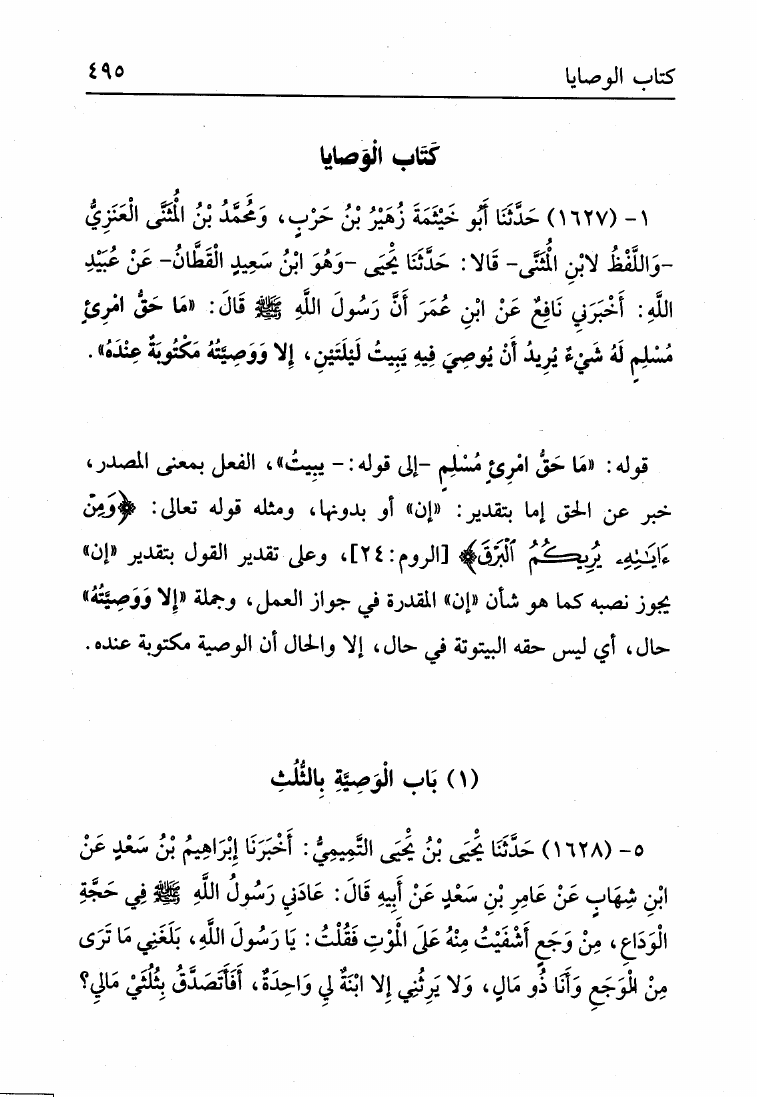 كتاب الوصايا ٤٩٥
كَتَاب الْوَصايا
١- (١٦٢٧) حَدَّثَنَا أَبُو خَيْثَمَةَ زُهَيْرُ بْنُ حَرْبٍ، وَمُحَمَّدُ بْنُ الْمُثَنَّى الْعَنَزِيُّ
-وَاللَّفْظُ لابْنِ الْمُثَنَّى- قَالا: حَدَّثَنَا يَحْيَى -وَهُوَ ابْنُ سَعِيدٍ الْقَطَّانُ- عَنْ عُبَيْدِ
اللَّهِ: أَخْبَرَنِي نَافِعٌ عَنْ ابْنِ عُمَرَ أَنَّ رَسُولَ اللَّهِ ﷺ قَالَ: «مَا حَقُّ امْرِئٍ
مُسْلِمٍ لَهُ شَيْءٌ يُرِيدُ أَنْ يُوصِيَ فِيهِ يَبِيتُ لَيْلَتَيْنِ، إِلا وَوَصِيَّتُهُ مَكْتُوبَةٌ عِنْدَهُ».
قوله: «مَا حَقُّ امْرِئٍ مُسْلِمٍ -إلى قوله:- يبيتُ»، الفعل بمعنى المصدر،
خبر عن الحق إما بتقدير: «إن» أو بدونها، ومثله قوله تعالى: ﴿وَمِنْ
ءَايَـٰتِهِۦ يُرِيكُمُ ٱلْبَرْقَ﴾ [الروم:٢٤]، وعلى تقدير القول بتقدير «إن»
يجوز نصبه كما هو شأن «إن» المقدرة في جواز العمل، وجملة «إِلا وَوَصِيَّتُهُ»
حال، أي ليس حقه البيتوتة في حال، إلا والحال أن الوصية مكتوبة عنده.
(١) بَاب الْوَصِيَّةِ بِالثُّلُثِ
٥- (١٦٢٨) حَدَّثَنَا يَحْيَى بْنُ يَحْيَى التَّمِيمِيُّ: أَخْبَرَنَا إِبْرَاهِيمُ بْنُ سَعْدٍ عَنْ
ابْنِ شِهَابٍ عَنْ عَامِرِ بْنِ سَعْدٍ عَنْ أَبِيهِ قَالَ: عَادَنِي رَسُولُ اللَّهِ ﷺ فِي حَجَّةِ
الْوَدَاعِ، مِنْ وَجَعٍ أَشْفَيْتُ مِنْهُ عَلَى الْمَوْتِ فَقُلْتُ: يَا رَسُولَ اللَّهِ، بَلَغَنِي مَا تَرَى
مِنْ الْوَجَعِ وَأَنَا ذُو مَالٍ، وَلا يَرِثُنِي إِلا ابْنَةٌ لِي وَاحِدَةٌ، أَفَأَتَصَدَّقُ بِثُلُثَيْ مَالِي؟